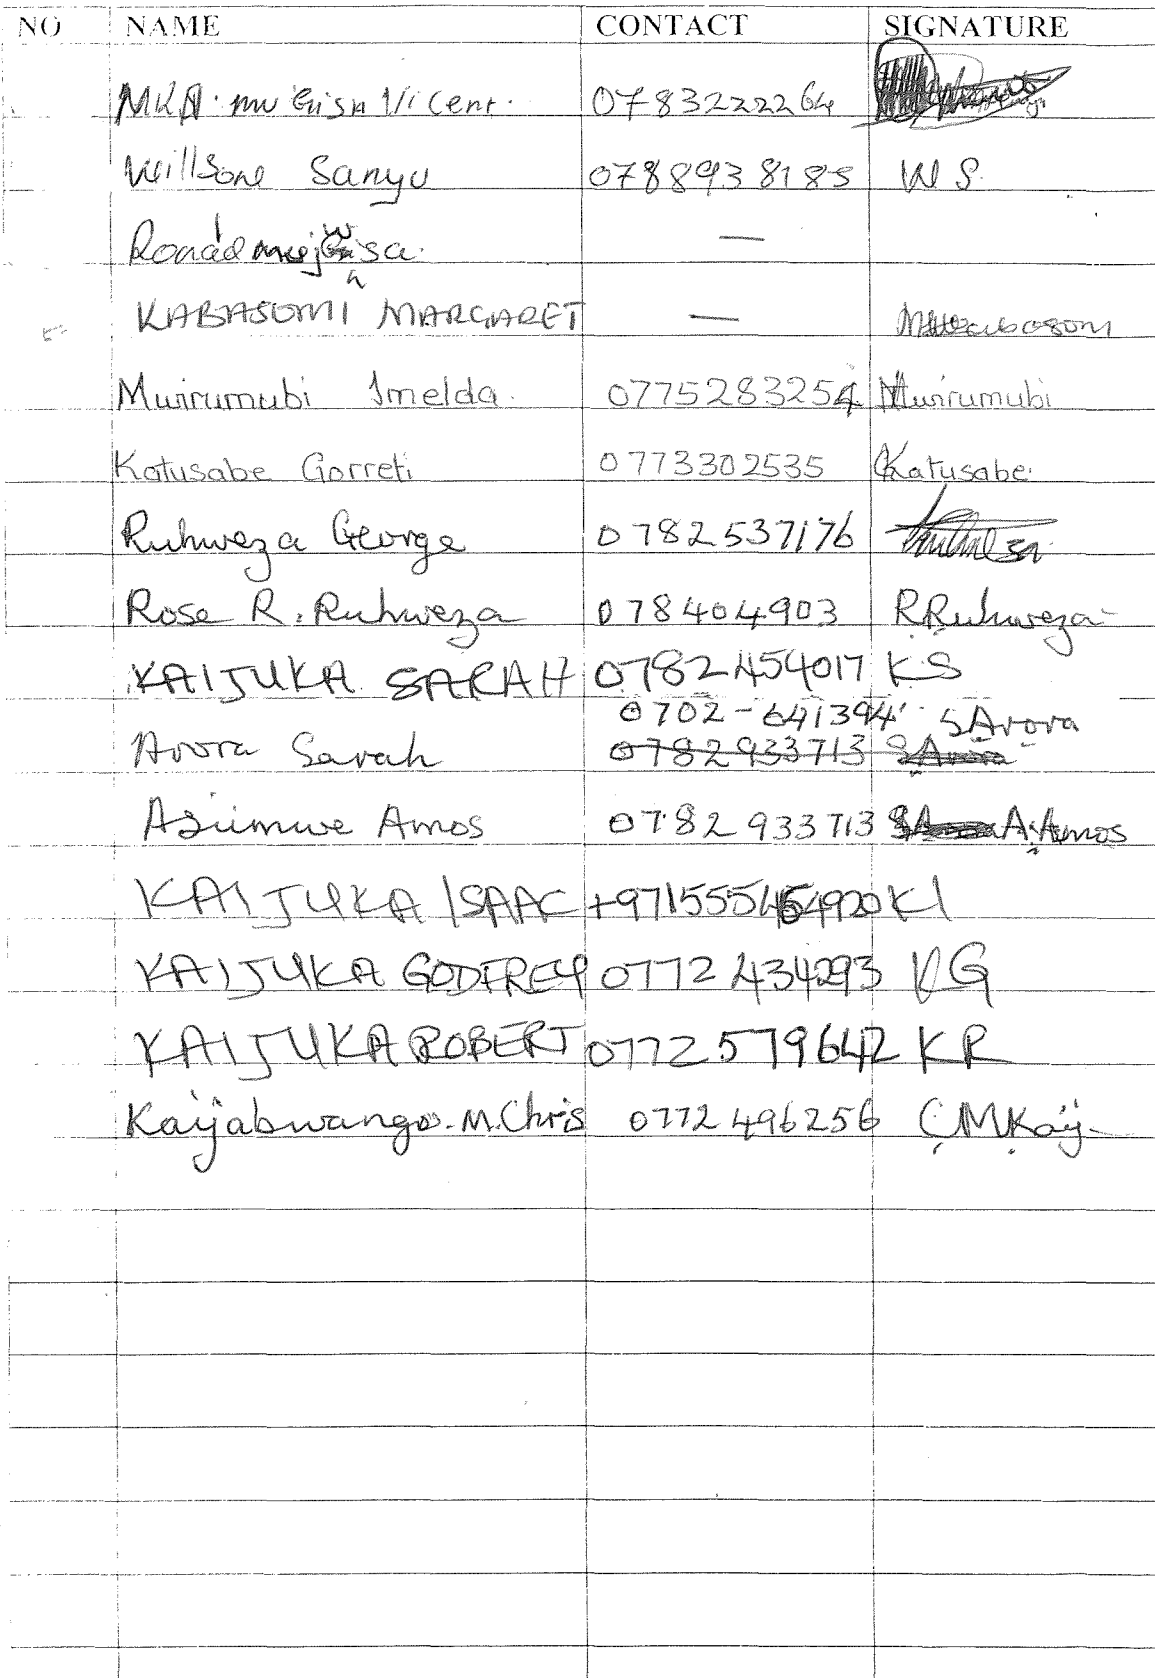 NO NAME CONTACT SIGNATURE
MKA. mugisa Vicent. 0783222264
Willsone Sanyu 0788938185 W S.
Ronald —
KABASOMI MARGARET —
Muirumubi Imelda. 0775283254 Muirumubi
Katusabe Gorreti 0773302535 Katusabe
Ruhweza George 0782537176
Rose R. Ruhweza 078404903 R.Ruhweza
KAIJUKA SARAH 0782454017 KS
0702-641394 SArora
Arora Sarah 0782933713
Asiimwe Amos 0782933713 A.Amos
KAIJUKA ISAAC KI
KAIJUKA GODFREY 0772434293 KG
KAIJUKA ROBERT 0772579642 KR
Kaijabwango. M. Chris 0772496256 C.M.Kaij-